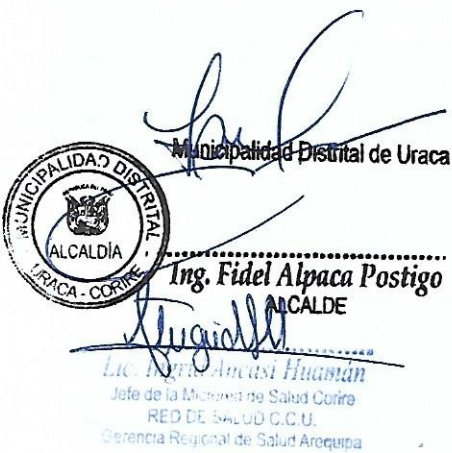 Municipalidad Distrital de Uraca
MUNICIPALIDAD DISTRITAL
REPUBLICA DEL PERU
ALCALDÍA
URACA - CORIRE
Ing. Fidel Alpaca Postigo
ALCALDE
Lic. Ingrid Ancasi Huamán
Jefe de la Microred de Salud Corire
RED DE SALUD C.C.U.
Gerencia Regional de Salud Arequipa